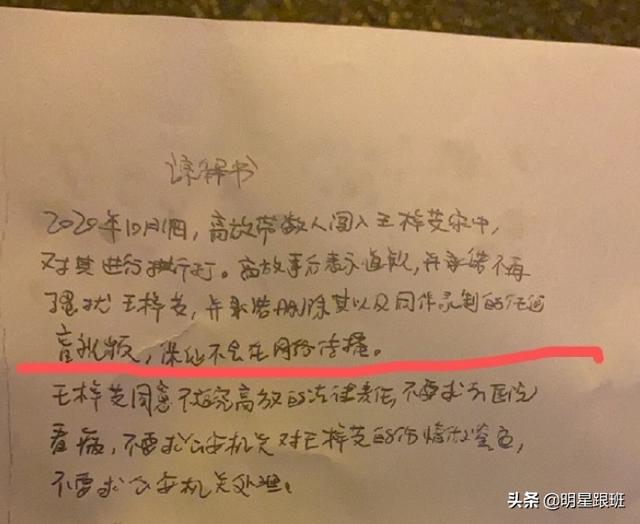 谅解书
2020年10月1日，高放带数人闯入王梓芠家中，
对其进行殴打。高放事后表示道歉，并承诺不再
骚扰王梓芠，并承诺删除其以及同伴录制的任何
音视频，保证不会在网络传播。
王梓芠同意不追究高放的法律责任，不要求去医院
看病，不要求公安机关对王梓芠的伤情做鉴定，
不要求公安机关处理。
头条 @明星跟班